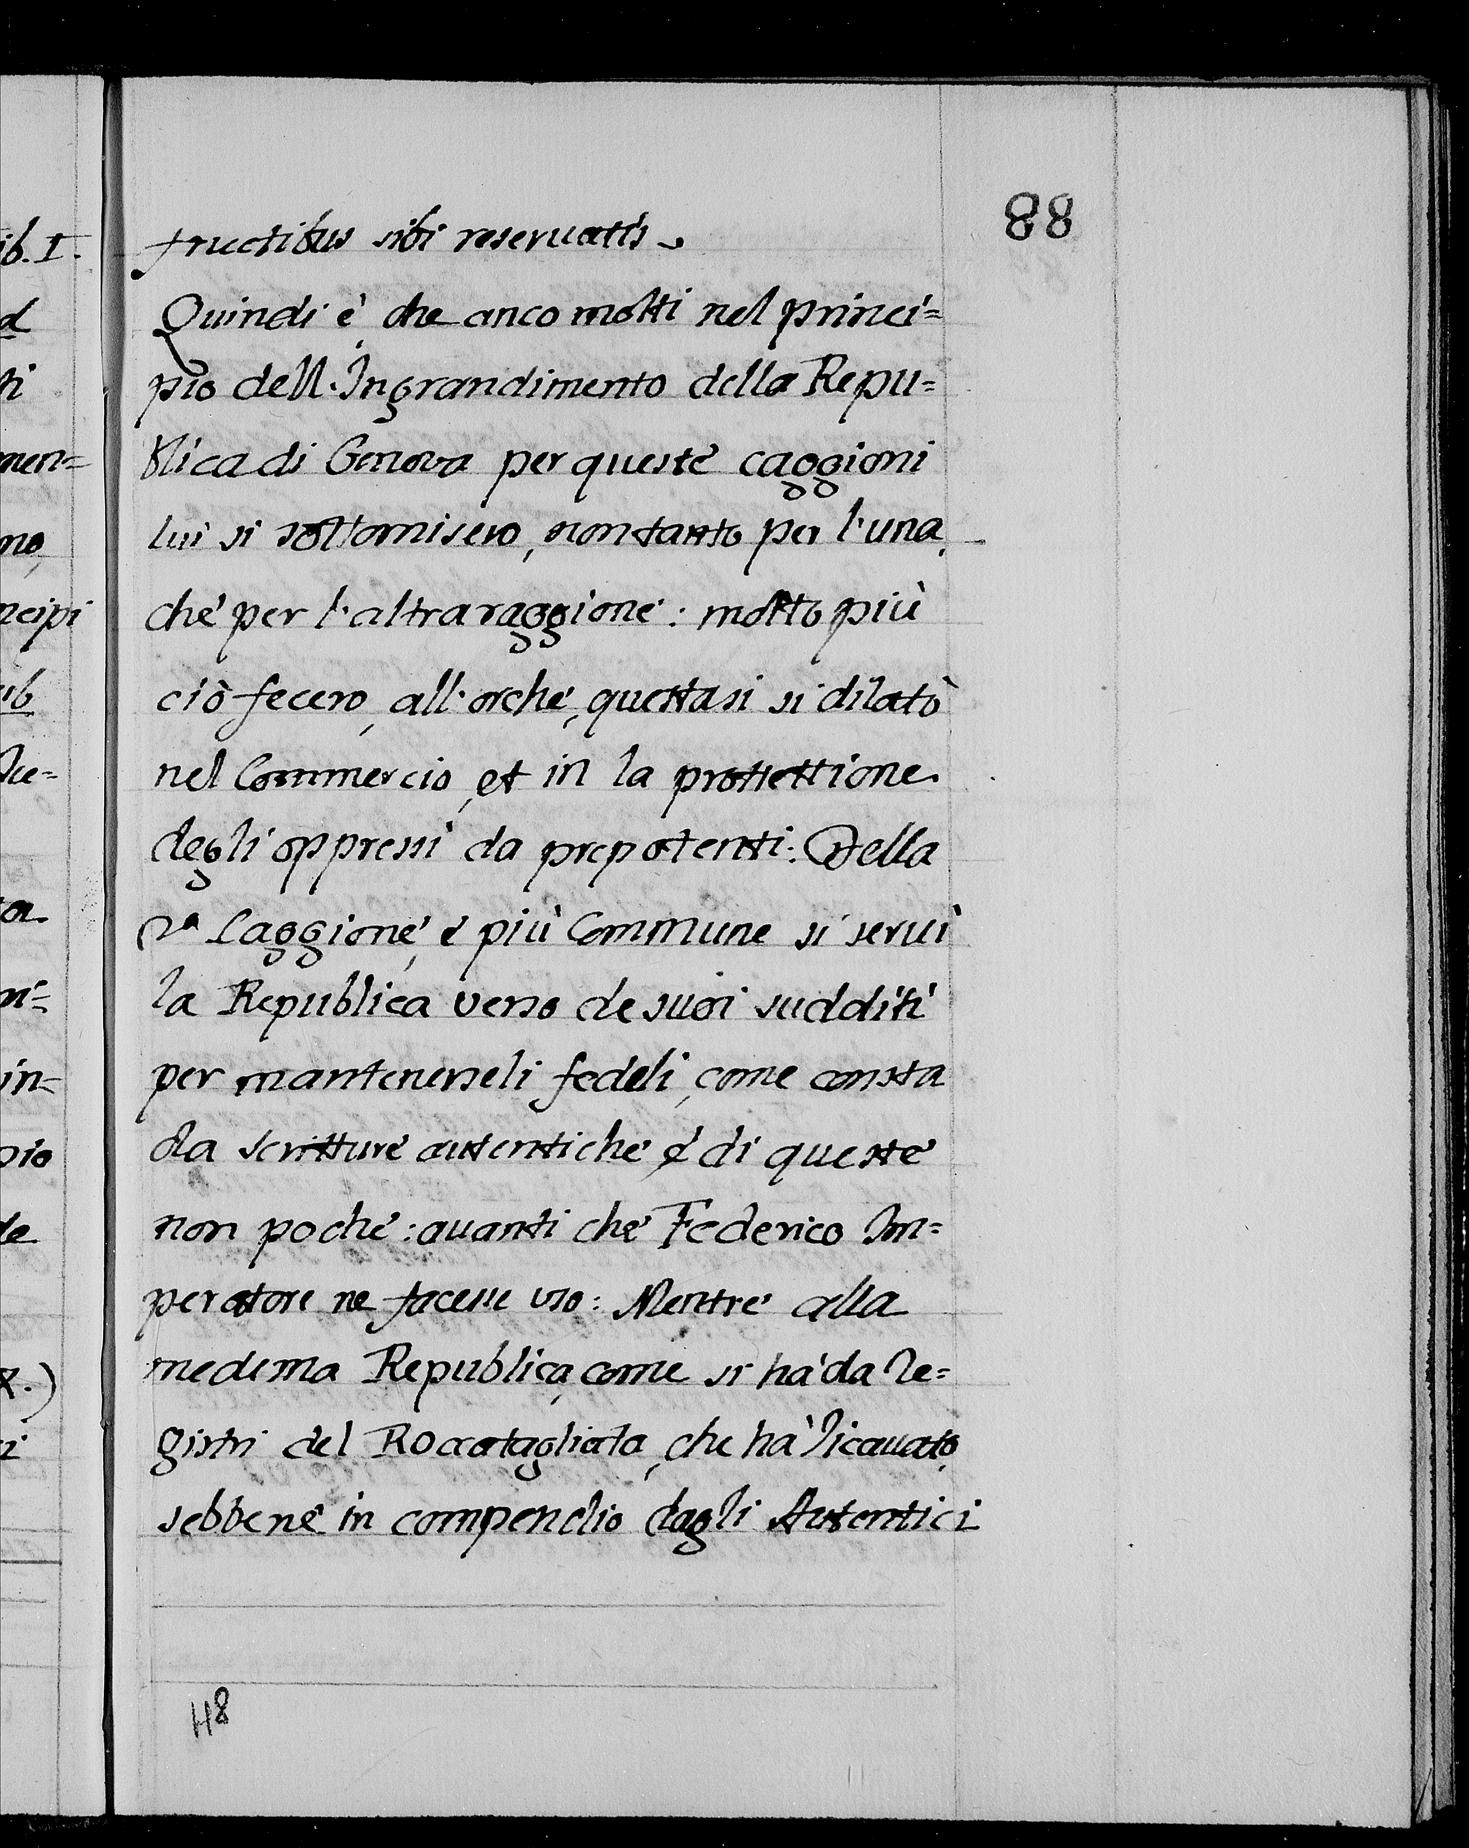 88
fructibus sibi reseruatis.
Quindi è, che anco molti nel princi=
pio dell'Ingrandimento della Repu=
blica di Genova per queste caggioni
lui si sottomisero, non tanto per l'una,
che per l'altra raggione: molto più
ciò fecero, all'orche, questasi si dilatò
nel Commercio, et in la prottettione
degli oppressi da prepotenti: Della
2ª Caggione, e più Commune si seruì
la Republica verso de suoi sudditi
per mantenerseli fedeli, come consta
da scritture autentiche é di queste
non poche: auanti che Federico Im=
peratore ne facesse uso: Mentre alla
medema Republica, come si hà da Re=
gistri del Roccatagliata, che hà Ricauato,
sebbene in compendio dagli Autentici
H8
ib. I.
d
ti
men=
no,
ncipi
ub
ta
ni=
in=
pio
de